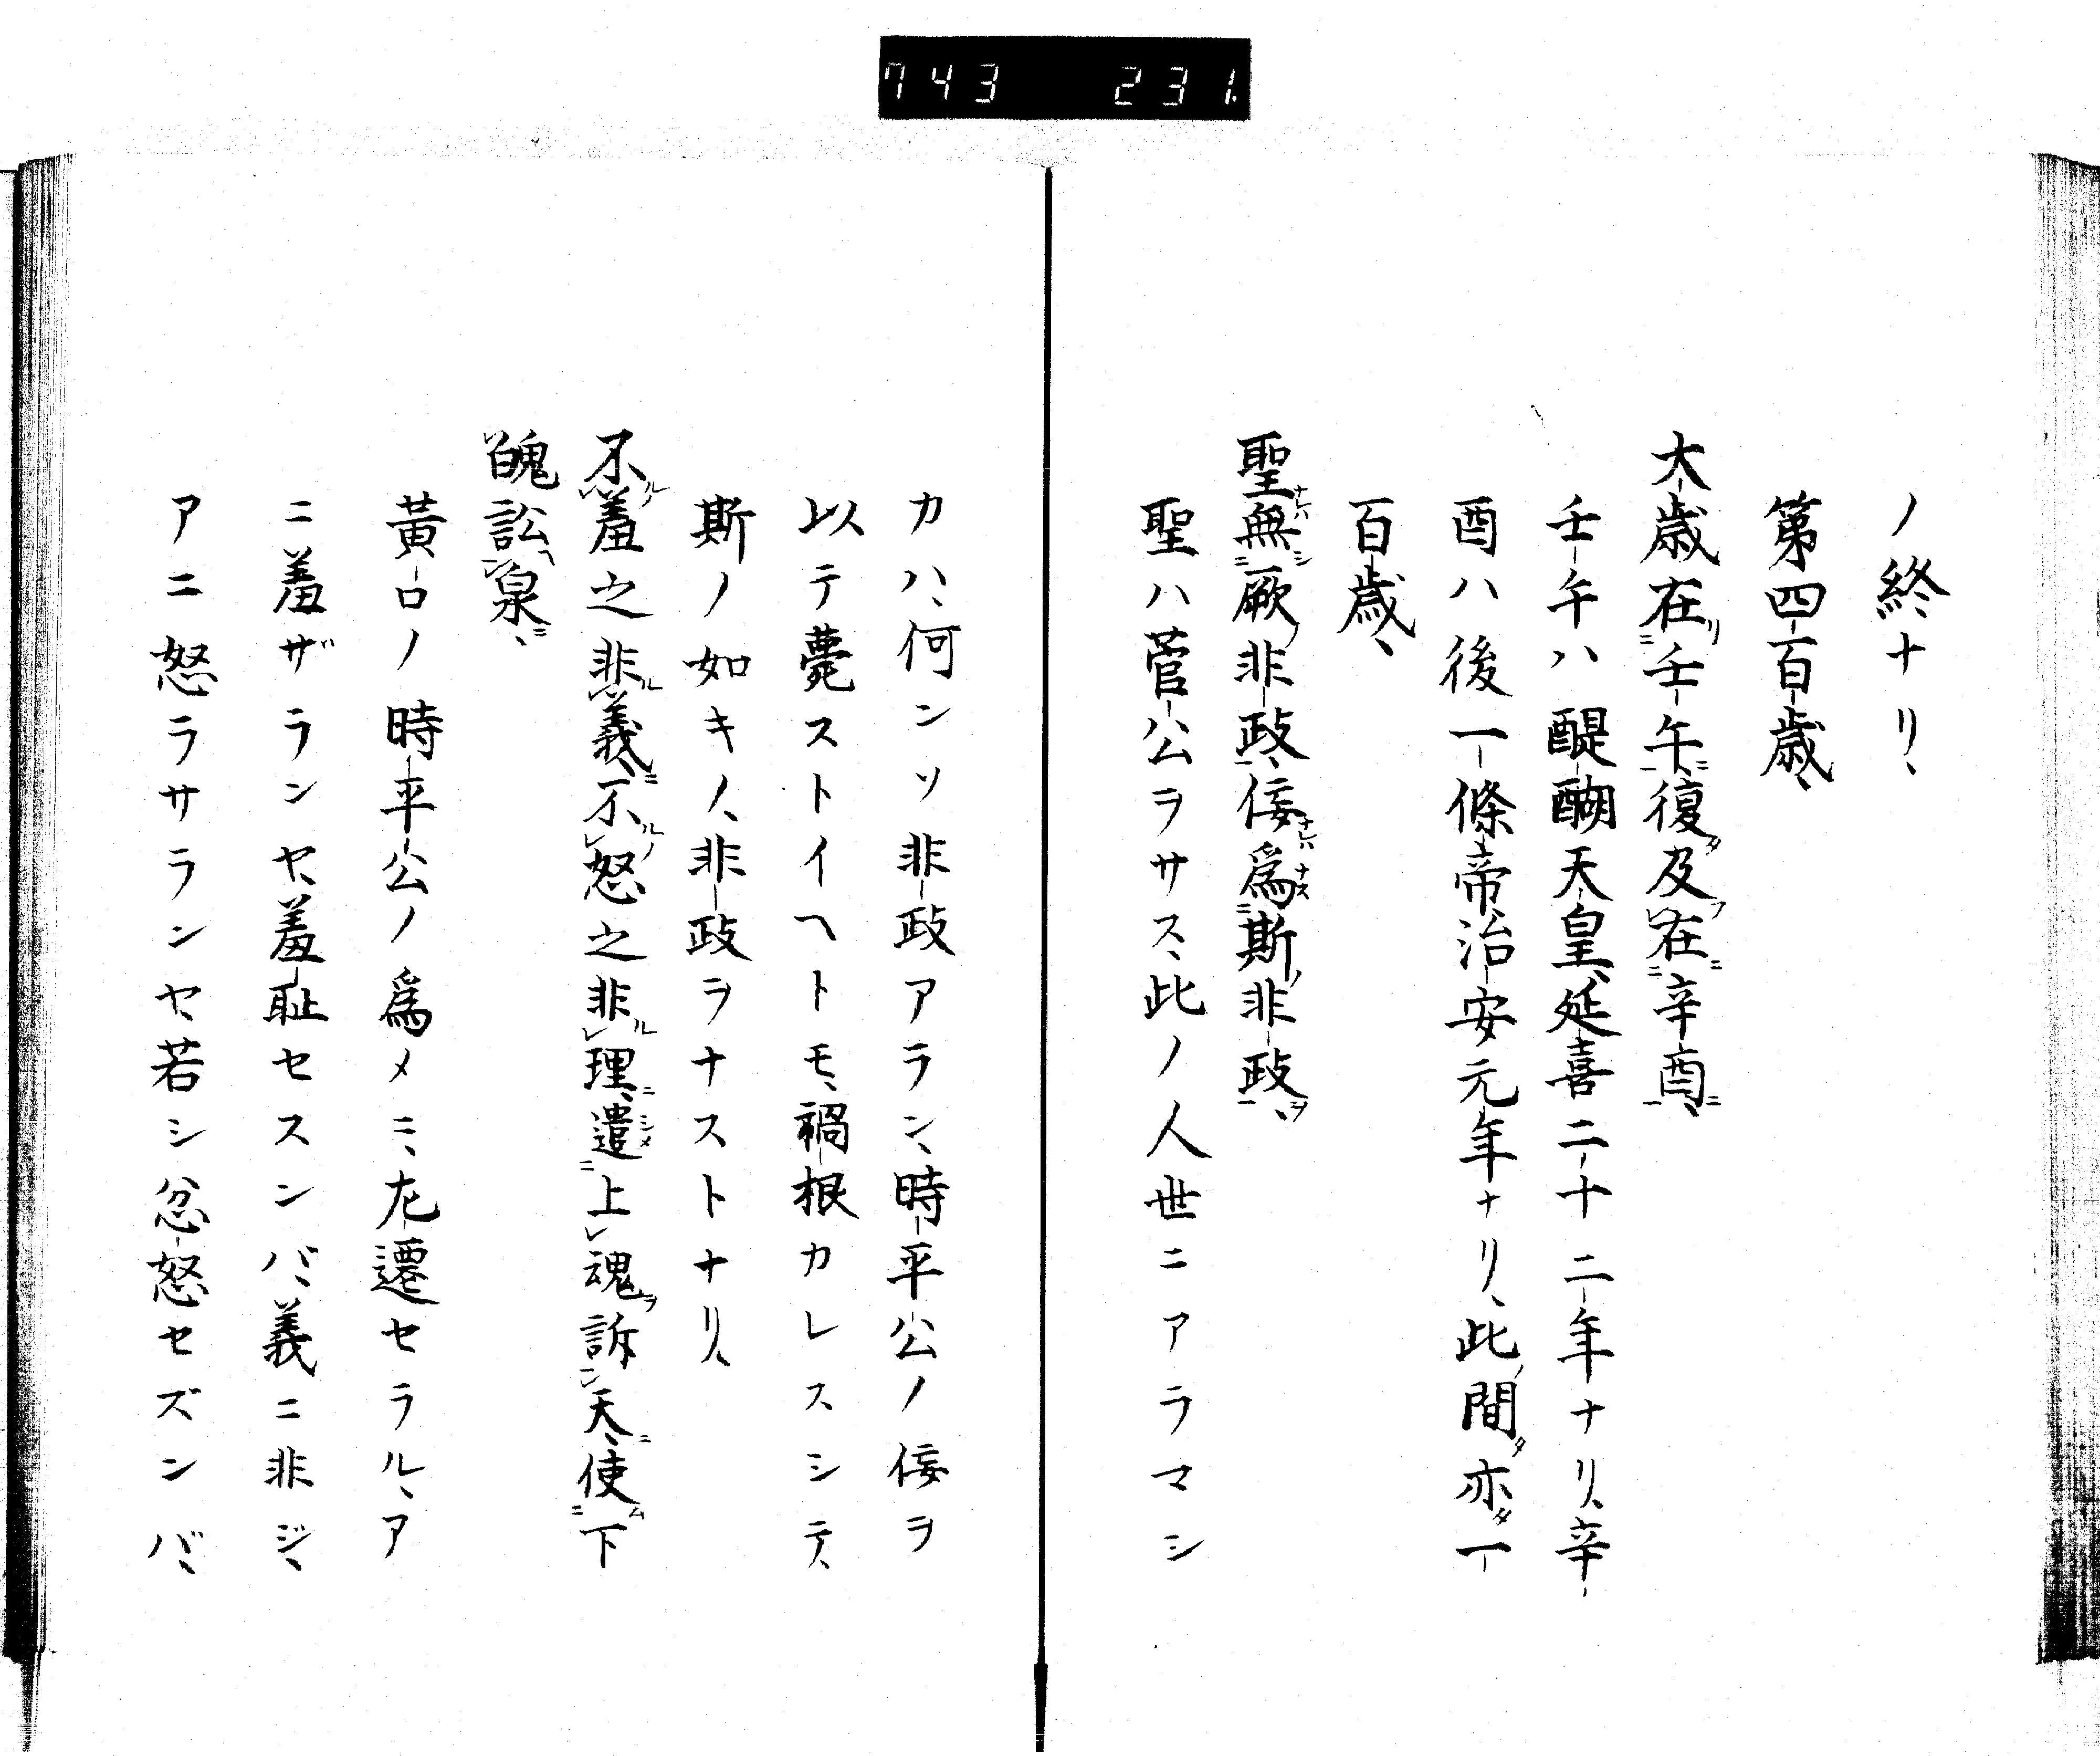 743 231.
ノ終ナリ、
第四百歳、
大歳在壬午復及在辛酉、
壬午ハ醍醐天皇延喜二十二年ナリ、辛
酉ハ後一條帝治安元年ナリ、此ノ間タ亦タ一
百歳、
聖無厥非政、佞爲斯非政、
聖ハ菅公ヲサス、此ノ人世ニアラマシ
カハ、何ンソ非政アラン、時平公ノ佞ヲ
以テ薨ストイヘトモ、禍根カレスシテ、
斯ノ如キノ、非政ヲナストナリ、
不羞之非義、不怒之非理、遣上魂訴天、使下
魄訟泉、
黄口ノ時平公ノ爲メニ、左遷セラル、ア
ニ羞ザランヤ、羞耻セスンバ、義ニ非ジ、
アニ怒ラサランヤ、若シ忿怒セズンバ、